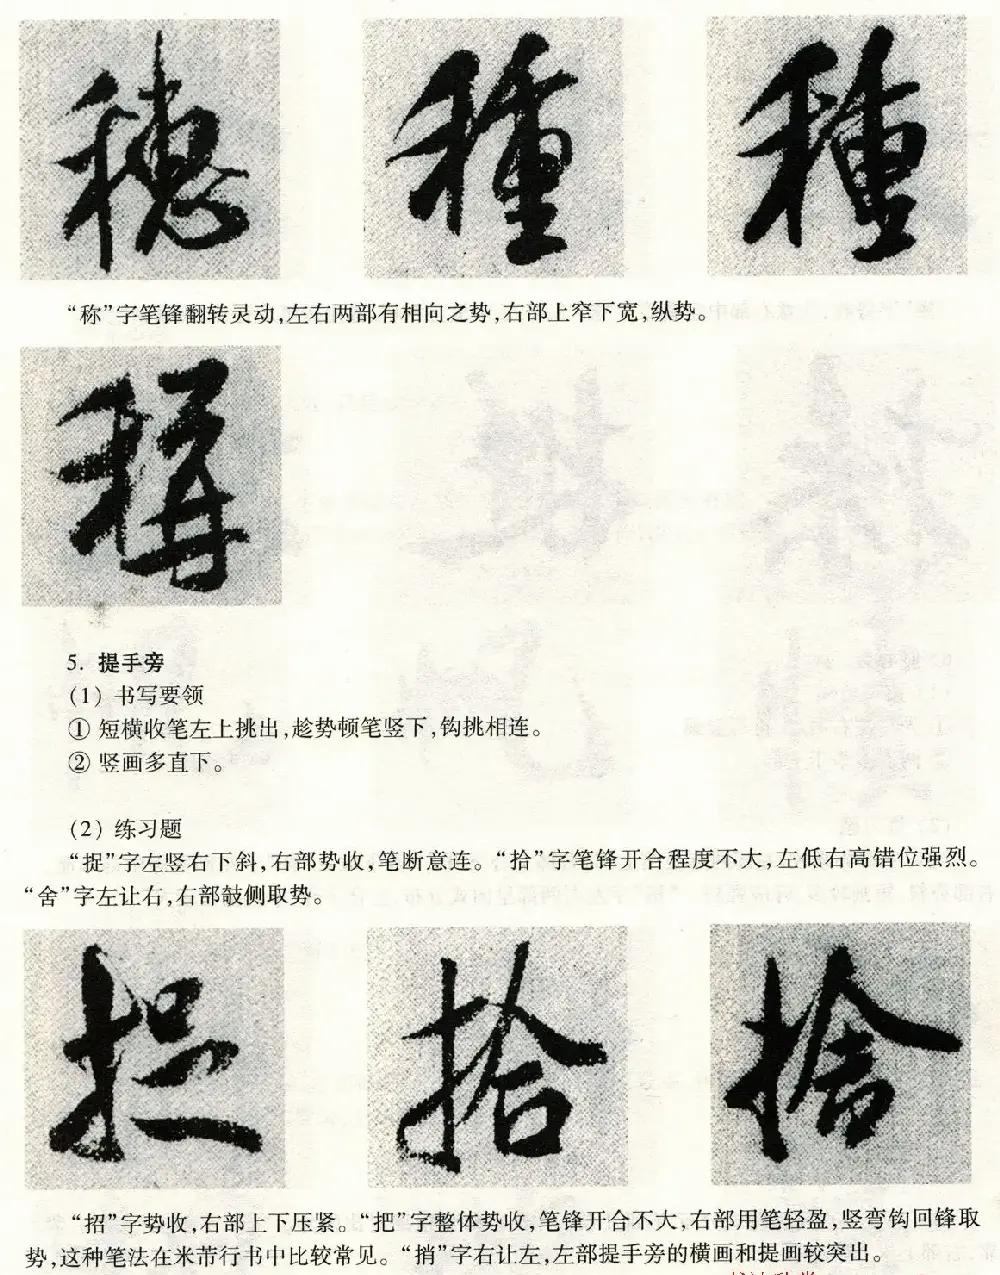 穗 種 種
“称”字笔锋翻转灵动,左右两部有相向之势,右部上窄下宽,纵势。
稱
5. 提手旁
(1) 书写要领
① 短横收笔左上挑出,趁势顿笔竖下,钩挑相连。
② 竖画多直下。
(2) 练习题
“捉”字左竖右下斜,右部势收,笔断意连。“拾”字笔锋开合程度不大,左低右高错位强烈。
“舍”字左让右,右部敧侧取势。
捉 拾 捨
“招”字势收,右部上下压紧。“把”字整体势收,笔锋开合不大,右部用笔轻盈,竖弯钩回锋取
势,这种笔法在米芾行书中比较常见。“捎”字右让左,左部提手旁的横画和提画较突出。